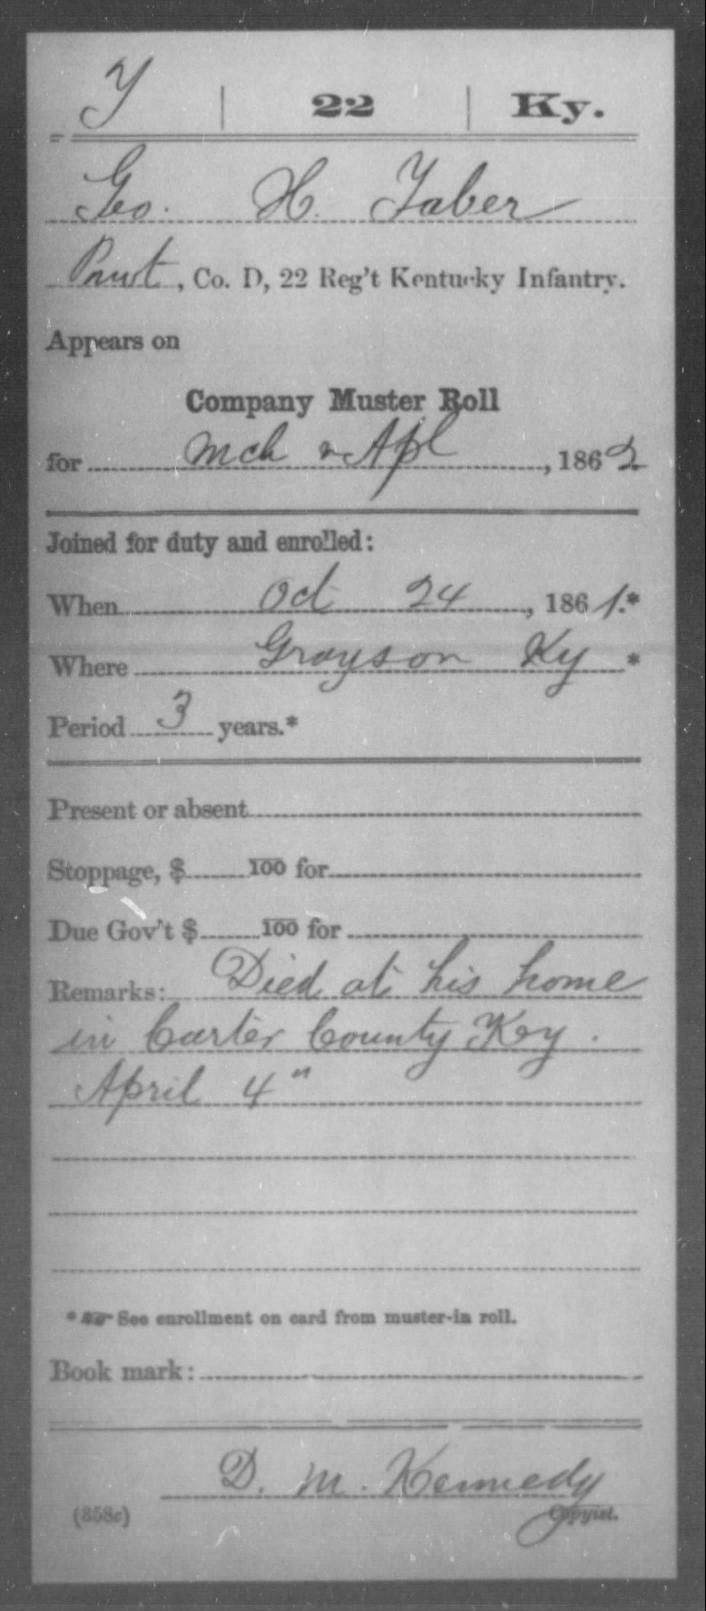 Y | 22 | Ky.
Geo. H. Yaber
Pvvt, Co. D, 22 Reg't Kentucky Infantry.
Appears on
Company Muster Roll
for Mch & Apl, 1862
Joined for duty and enrolled:
When Oct 24, 1861.*
Where Grayson Ky *
Period 3 years.*
Present or absent
Stoppage, $ 100 for
Due Gov't $ 100 for
Remarks: Died at his home
in Carter County Ky.
April 4"
* See enrollment on card from muster-in roll.
Book mark:
D. M. Kennedy
(358c) Copyist.